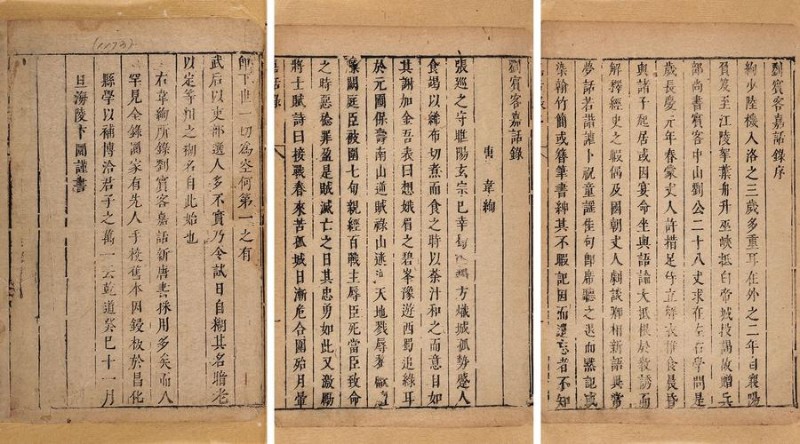 劉賓客嘉話錄序
絢少陸機入洛之三歲多重耳在外之二年自襄陽
負笈至江陵挐葉舟升巫峽抵白帝城投謁故贈兵
部尚書賓客中山劉公二十八丈求在左右學問是
歲長慶元年春蒙丈人許措足侍立解衣推食晨昏
與諸子起居或因宴命坐與語論大抵根於教誘而
解釋經史之暇偶及國朝丈人劇談卿相新語異常
夢話若諧謔卜祝童謠佳句即席聽之退而默記或
染翰竹簡或簪筆書紳其不暇記因而遺忘者不知
劉賓客嘉話錄
唐 韋絢
張巡之守睢陽玄宗已幸蜀方熾城孤勢蹙人
食竭以紙布切煮而食之時以茶汁和之而意自如
其謝加金吾表曰想峨眉之碧峯豫遊西蜀追綠耳
於元圃保壽南山逆賊祿山迷逆天地戮辱黎獻
臊闕庭臣被圍七旬親經百戰主辱臣死當臣致命
之時惡稔罪盈是賊滅亡之日其忠勇如此又激勵
將士賦詩曰接戰春來苦孤城日漸危合圍殆月暈
(1173)
即下世一切為空何第一之有
武后以吏部選人多不實乃令試日自糊其名暗考
以定等判之糊名自此始也
右韋絢所錄劉賓客嘉話新唐書採用多矣而人
罕見全錄圜家有先人手校舊本因鋟板於昌化
縣學以補博洽君子之萬一云乾道癸巳十一月
旦海陵卞圜謹書